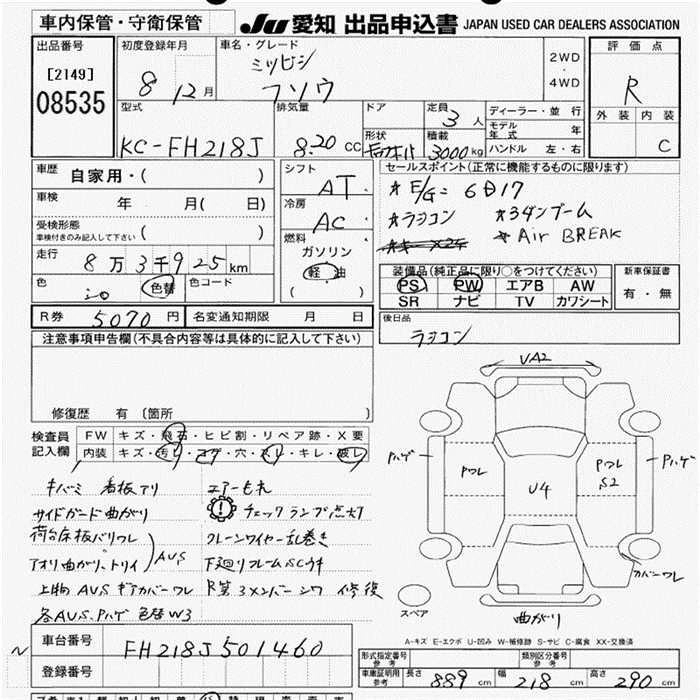 車内保管・守衛保管
JU 愛知 出品申込書 JAPAN USED CAR DEALERS ASSOCIATION
出品番号
[2149]
08535
初度登録年月
8 12月
車名・グレード
ミツビシ
フソウ
2WD
・
4WD
評価点
R
外装 内装
C
型式
KC-FH218J
排気量
8.20 CC
ドア
形状
定員
3人
積載
3000kg
ディーラー・並行
モデル年式 年
ハンドル 左・右
車歴
自家用・( )
車検
年 月( 日)
受検形態
車検付きのみ記入して下さい ( )
走行
8万3千925km
色
シロ
色替
色コード
シフト
AT
冷房
AC
燃料
ガソリン
軽油
( )
セールスポイント(正常に機能するものに限ります)
* E/G= 6D17
* ラジコン * 3ダンブーム
* Air BREAK
装備品(純正品に限り○をつけてください)
PS PW エアB AW
SR ナビ TV カワシート
新車保証書
有・無
R券 5070円
名変通知期限 月 日
後日品
ラジコン
注意事項申告欄(不具合内容等は具体的に記入して下さい)
修復歴 有 [箇所 ]
検査員
記入欄
FW キズ・飛石・ヒビ割・リペア跡・X要
内装 キズ・汚レ・コゲ・穴・スレ・キレ・破レ
キバミ 看板アリ
サイドガード曲がり
荷台床板バリワレ
アオリ曲がり、トリイ AUS
上物 AUS ギアカバーワレ
各AUS、Pハゲ 色替W3
エアーモレ
チェックランプ点灯
クレーンワイヤー乱巻き
下廻りフレームSCサキ
R第3メンバー シワ 修復
VA2
Pハゲ
Pワレ
U4
Pワレ
S2
Pハゲ
カバーワレ
曲がり
スペア
A-キズ E-エクボ U-凹み W-補修跡 S-サビ C-腐食 XX-交換済
車台番号
FH218J501460
登録番号
形式指定番号
参考
類別区分番号
参考
車庫証明用
参考
長さ 889cm
幅 218cm
高さ 290cm